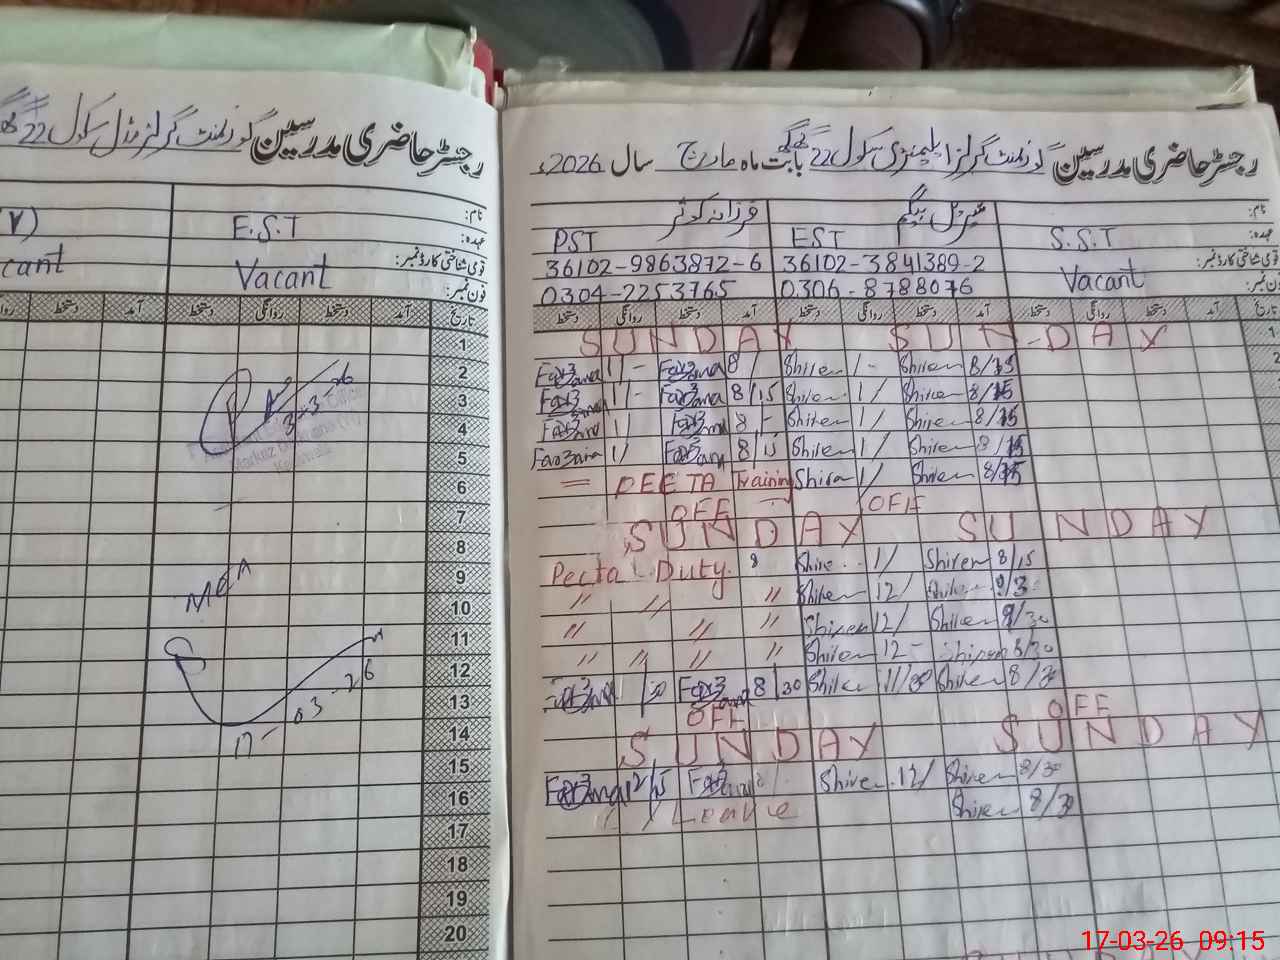 رجسٹر حاضری مدرسین گورنمنٹ گرلز مڈل سکول 22
E.S.T
عہدہ:
cant Vacant قومی شناختی کارڈ نمبر:
فون نمبر:
آمد دستخط روانگی دستخط آمد تاریخ
1
2
3
4
5
6
7
8
9
10
11
12
13
14
15
16
17
18
19
20
3-3-26
MEA
17-03-26
رجسٹر حاضری مدرسین گورنمنٹ گرلز ایلیمنٹری سکول 22 بابت ماہ مارچ سال 2026ء
نام: بیگم فرزانہ کوثر
عہدہ: S.S.T EST PST
قومی شناختی کارڈ نمبر: Vacant 36102-3841389-2 36102-9863872-6
0306-8788076 0304-2253765
تاریخ آمد دستخط روانگی دستخط آمد دستخط روانگی دستخط آمد دستخط روانگی دستخط
SUNDAY SUN-DAY
Farzana 1/- Farzana 8/ Shiren 1/- Shiren 8/15
Farzana 1/- Farzana 8/15 Shiren 1/ Shiren 8/15
Farzana 1/ Farzana 8/- Shiren 1/ Shiren 8/15
Farzana 1/ Farzana 8/15 Shiren 1/ Shiren 8/15
= PEETA Training Shiren 1/ Shiren 8/15
OFF OFF
SUNDAY SUNDAY
Pecta Duty 8 Shiren 1/ Shiren 8/15
" " " Shiren 12/ Shiren
" " " Shiren 12/ Shiren 8/30
" " " " Shiren 12- Shiren 8/30
Farzana /30 Farzana 8/30 Shiren 11/30 Shiren 8/30
OFF OFF
SUNDAY SUNDAY
Farzana 12/15 Farzana 8/- Shiren 12/ Shiren 8/30
Leave Shiren 8/30
17-03-26 09:15